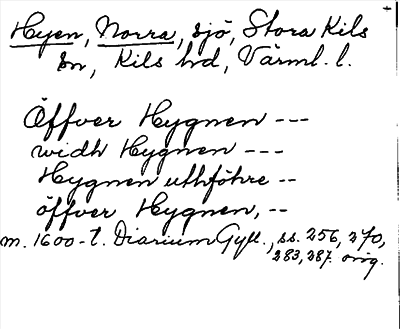 Hyen, Norra, sjö, Stora Kils
sn, Kils hd, Värml. l.
Äffver Hygnen ---
widh Hygnen ---
Hygnen uthföhre --
öffver Hygnen, --
m. 1600-t. Diarium Gyll., ss. 256, 270,
283, 287. orig.